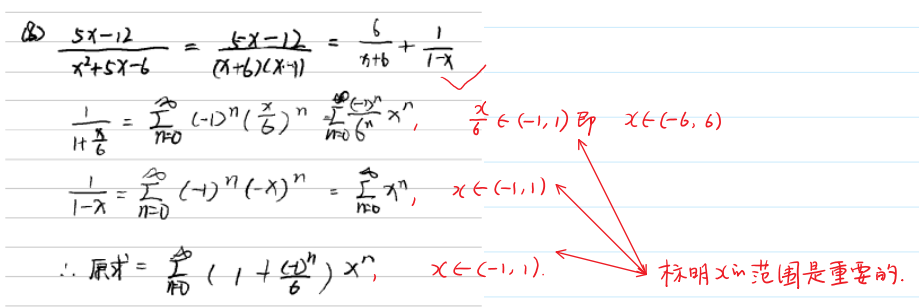 (6) \frac{5x-12}{x^2+5x-6} = \frac{5x-12}{(x+6)(x-1)} = \frac{6}{x+6} + \frac{1}{1-x}
\frac{1}{1+\frac{x}{6}} = \sum_{n=0}^{\infty} (-1)^n (\frac{x}{6})^n = \sum_{n=0}^{\infty} \frac{(-1)^n}{6^n} x^n, \frac{x}{6} ∈ (-1, 1) 即 x ∈ (-6, 6)
\frac{1}{1-x} = \sum_{n=0}^{\infty} (-1)^n (-x)^n = \sum_{n=0}^{\infty} x^n, x ∈ (-1, 1)
∴ 原式 = \sum_{n=0}^{\infty} (1 + \frac{(-1)^n}{6}) x^n, x ∈ (-1, 1).
标明x的范围是重要的.